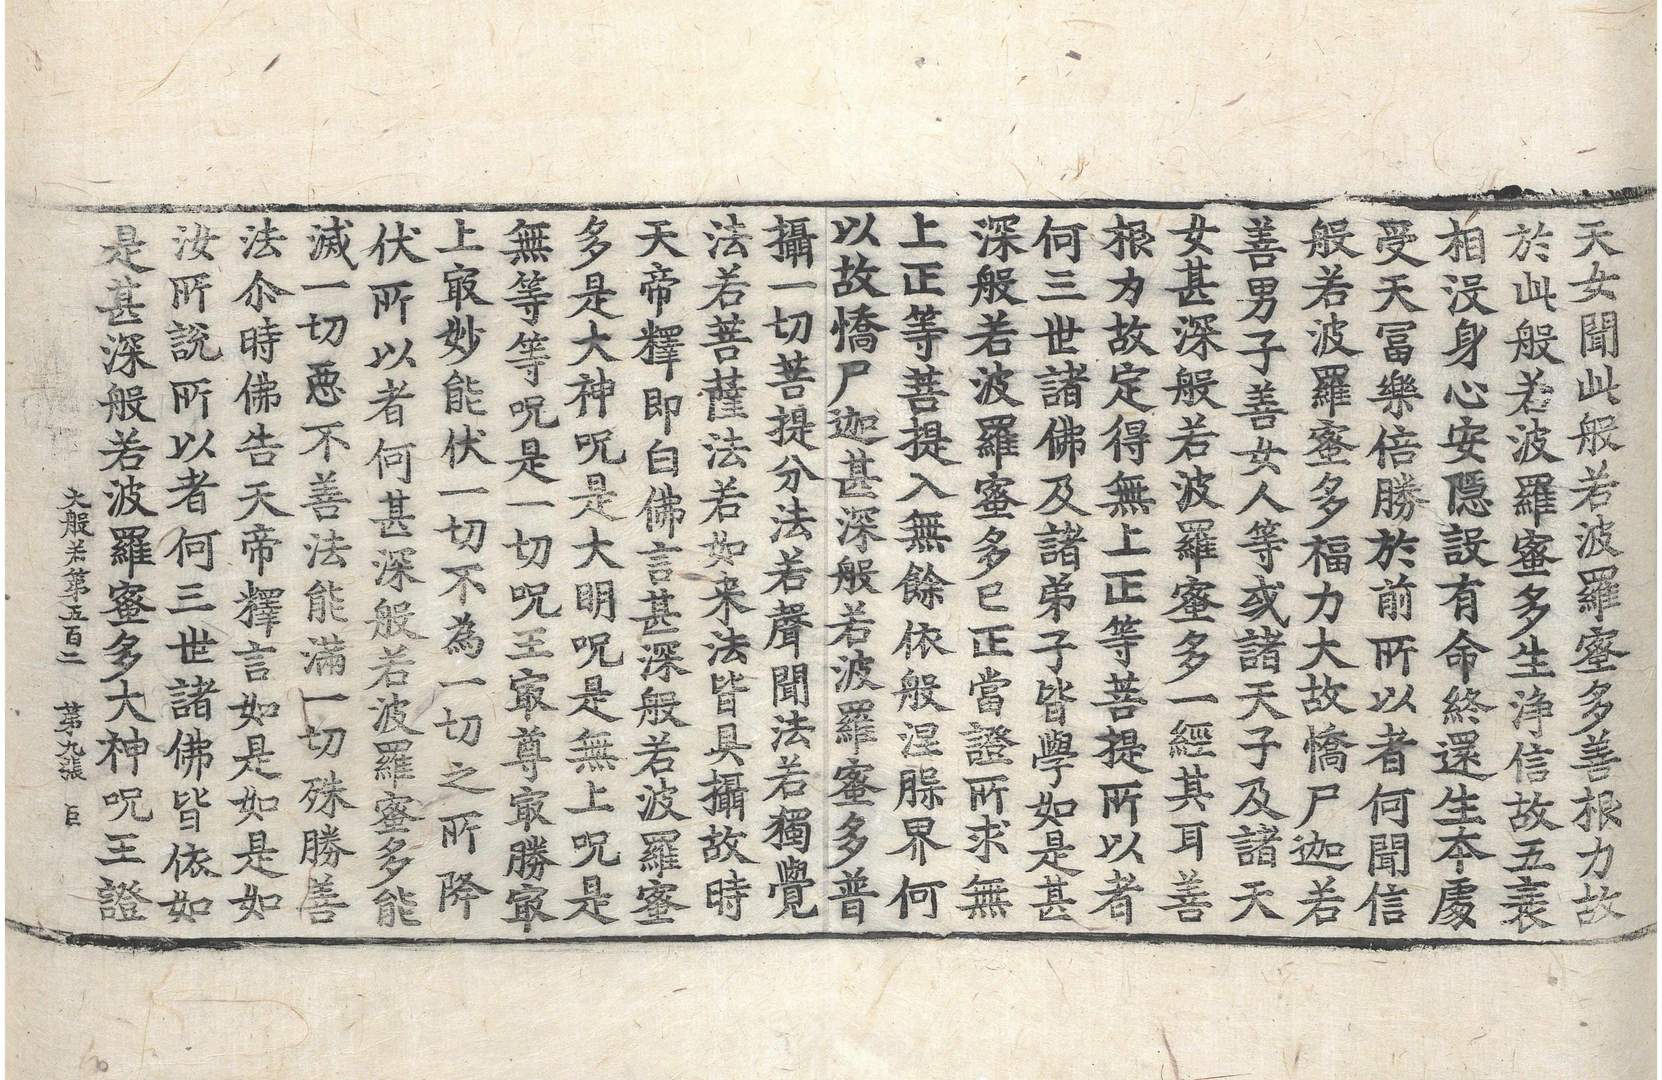 天女聞此般若波羅蜜多善根力故
於此般若波羅蜜多生淨信故五衰
相沒身心安隱設有命終還生本處
受天富樂倍勝於前所以者何聞信
般若波羅蜜多福力大故憍尸迦若
善男子善女人等或諸天子及諸天
女甚深般若波羅蜜多一經其耳善
根力故定得無上正等菩提所以者
何三世諸佛及諸弟子皆學如是甚
深般若波羅蜜多已正當證所求無
上正等菩提入無餘依般涅槃界何
以故憍尸迦甚深般若波羅蜜多普
攝一切菩提分法若聲聞法若獨覺
法若菩薩法若如来法皆具攝故時
天帝釋即白佛言甚深般若波羅蜜
多是大神呪是大明呪是無上呪是
無等等呪是一切呪王寂尊寂勝寂
上寂妙能伏一切不為一切之所降
伏所以者何甚深般若波羅蜜多能
滅一切惡不善法能滿一切殊勝善
法尒時佛告天帝釋言如是如是如
汝所說所以者何三世諸佛皆依如
是甚深般若波羅蜜多大神呪王證
大般若第五百二 第九張 巨